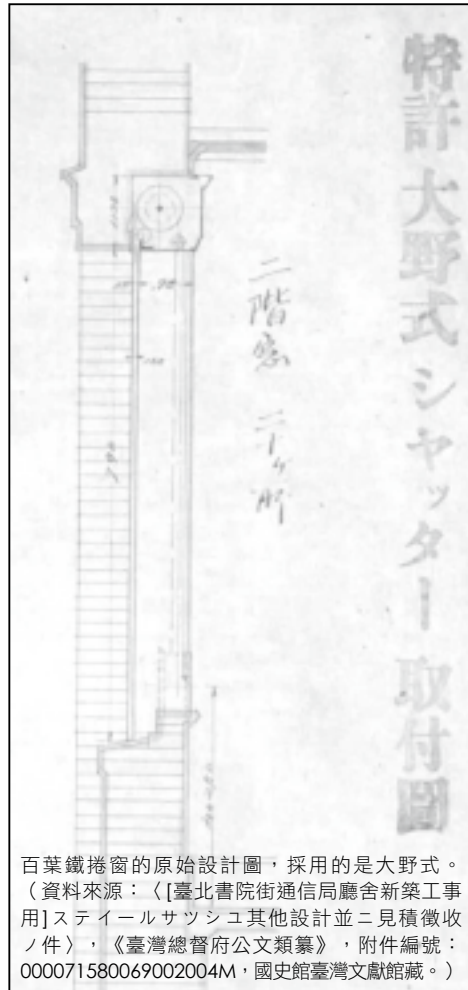 特許 大野式 シャッター 取付圖
二階窓 二十ヶ所
百葉鐵捲窗的原始設計圖，採用的是大野式。
（資料來源：〈[臺北書院街通信局廳舍新築工事
用]ステイールサツシユ其他設計並ニ見積徴收
ノ件〉，《臺灣總督府公文類纂》，附件編號：
000071580069002004M，國史館臺灣文獻館藏。）